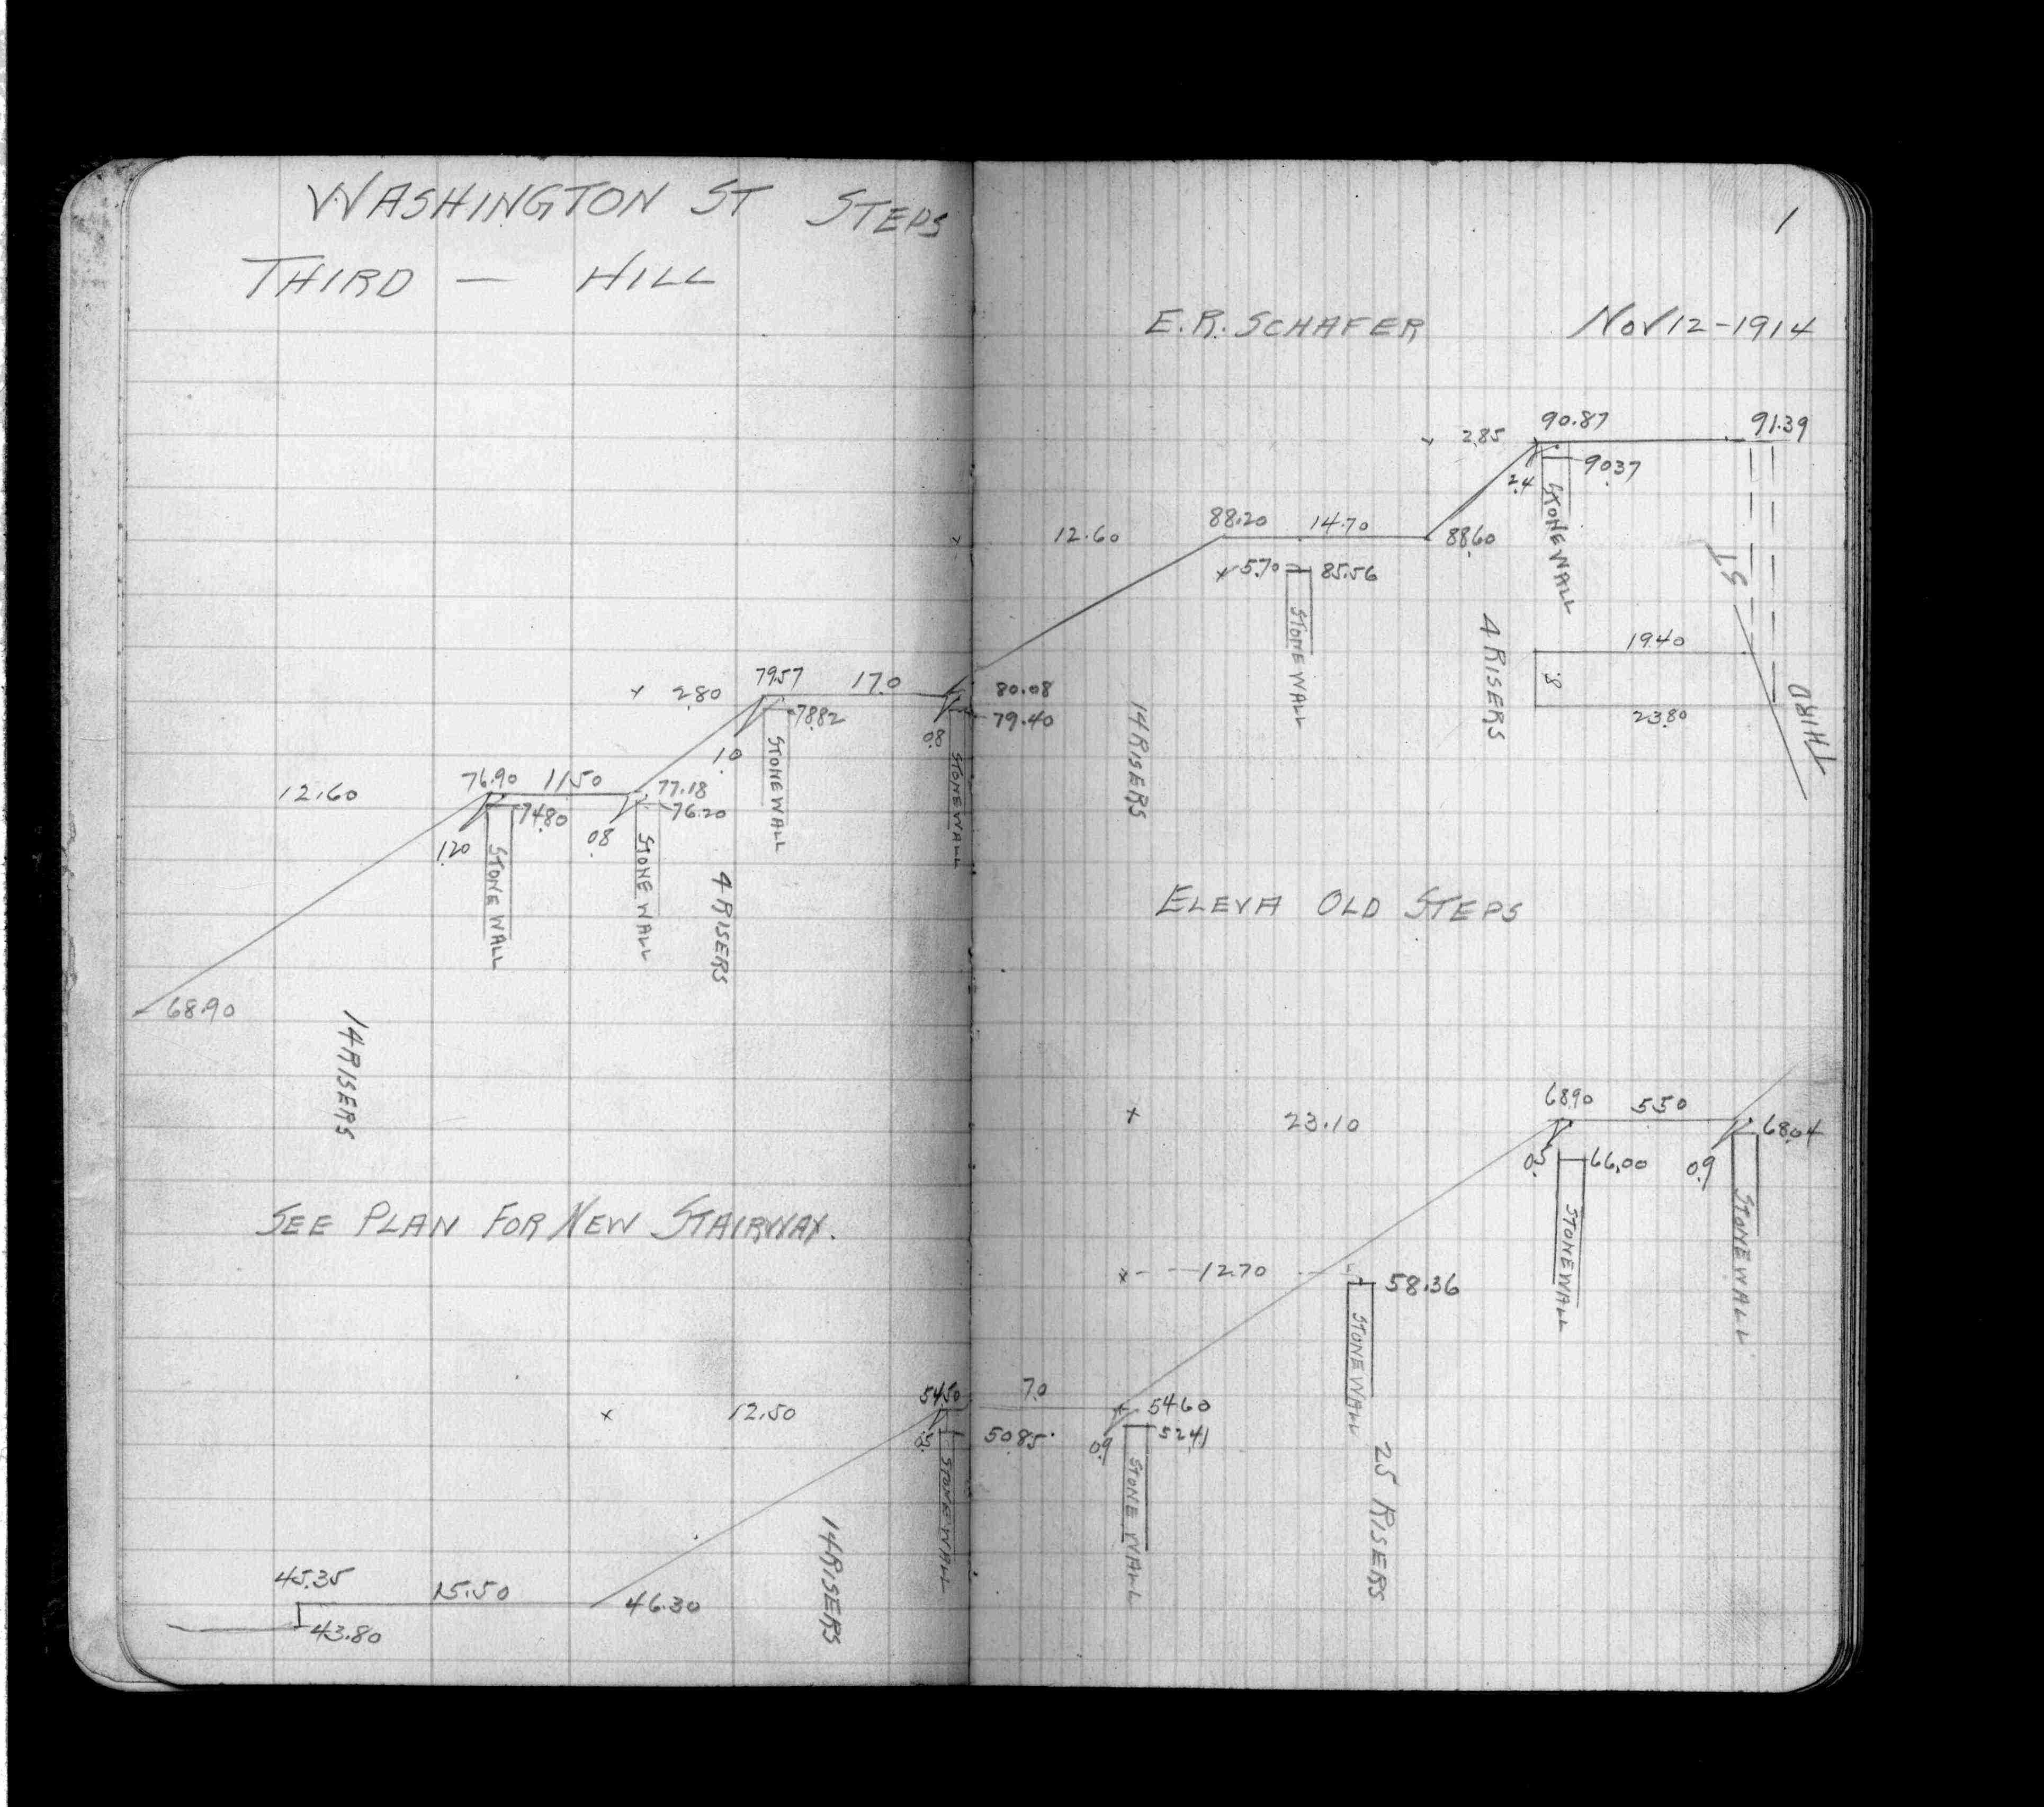 WASHINGTON ST STEPS
THIRD — HILL
1
E.R. SCHAFER NOV 12-1914
2.85 90.87 91.39
90.37
2.4
STONE WALL
12.60 88.20 14.70 88.60
5.70 85.56
STONE WALL
4 RISERS
ST
THIRD
19.40
.8
23.80
2.80 79.57 17.0 80.08
78.82 79.40
1.0 0.8
STONE WALL
STONE WALL
14 RISERS
12.60 76.90 11.50 77.18
74.80 76.20
1.20 0.8
STONE WALL
STONE WALL
4 RISERS
68.90
14 RISERS
ELEVA OLD STEPS
23.10 68.90 5.50 68.04
0.5 66.00 0.9
STONE WALL
STONE WALL
SEE PLAN FOR NEW STAIRWAY.
12.70 58.36
STONE WALL
25 RISERS
12.50 54.50 7.0 54.60
0.5 50.85 0.9 52.41
STONE WALL
STONE WALL
14 RISERS
45.35 15.50 46.30
43.80